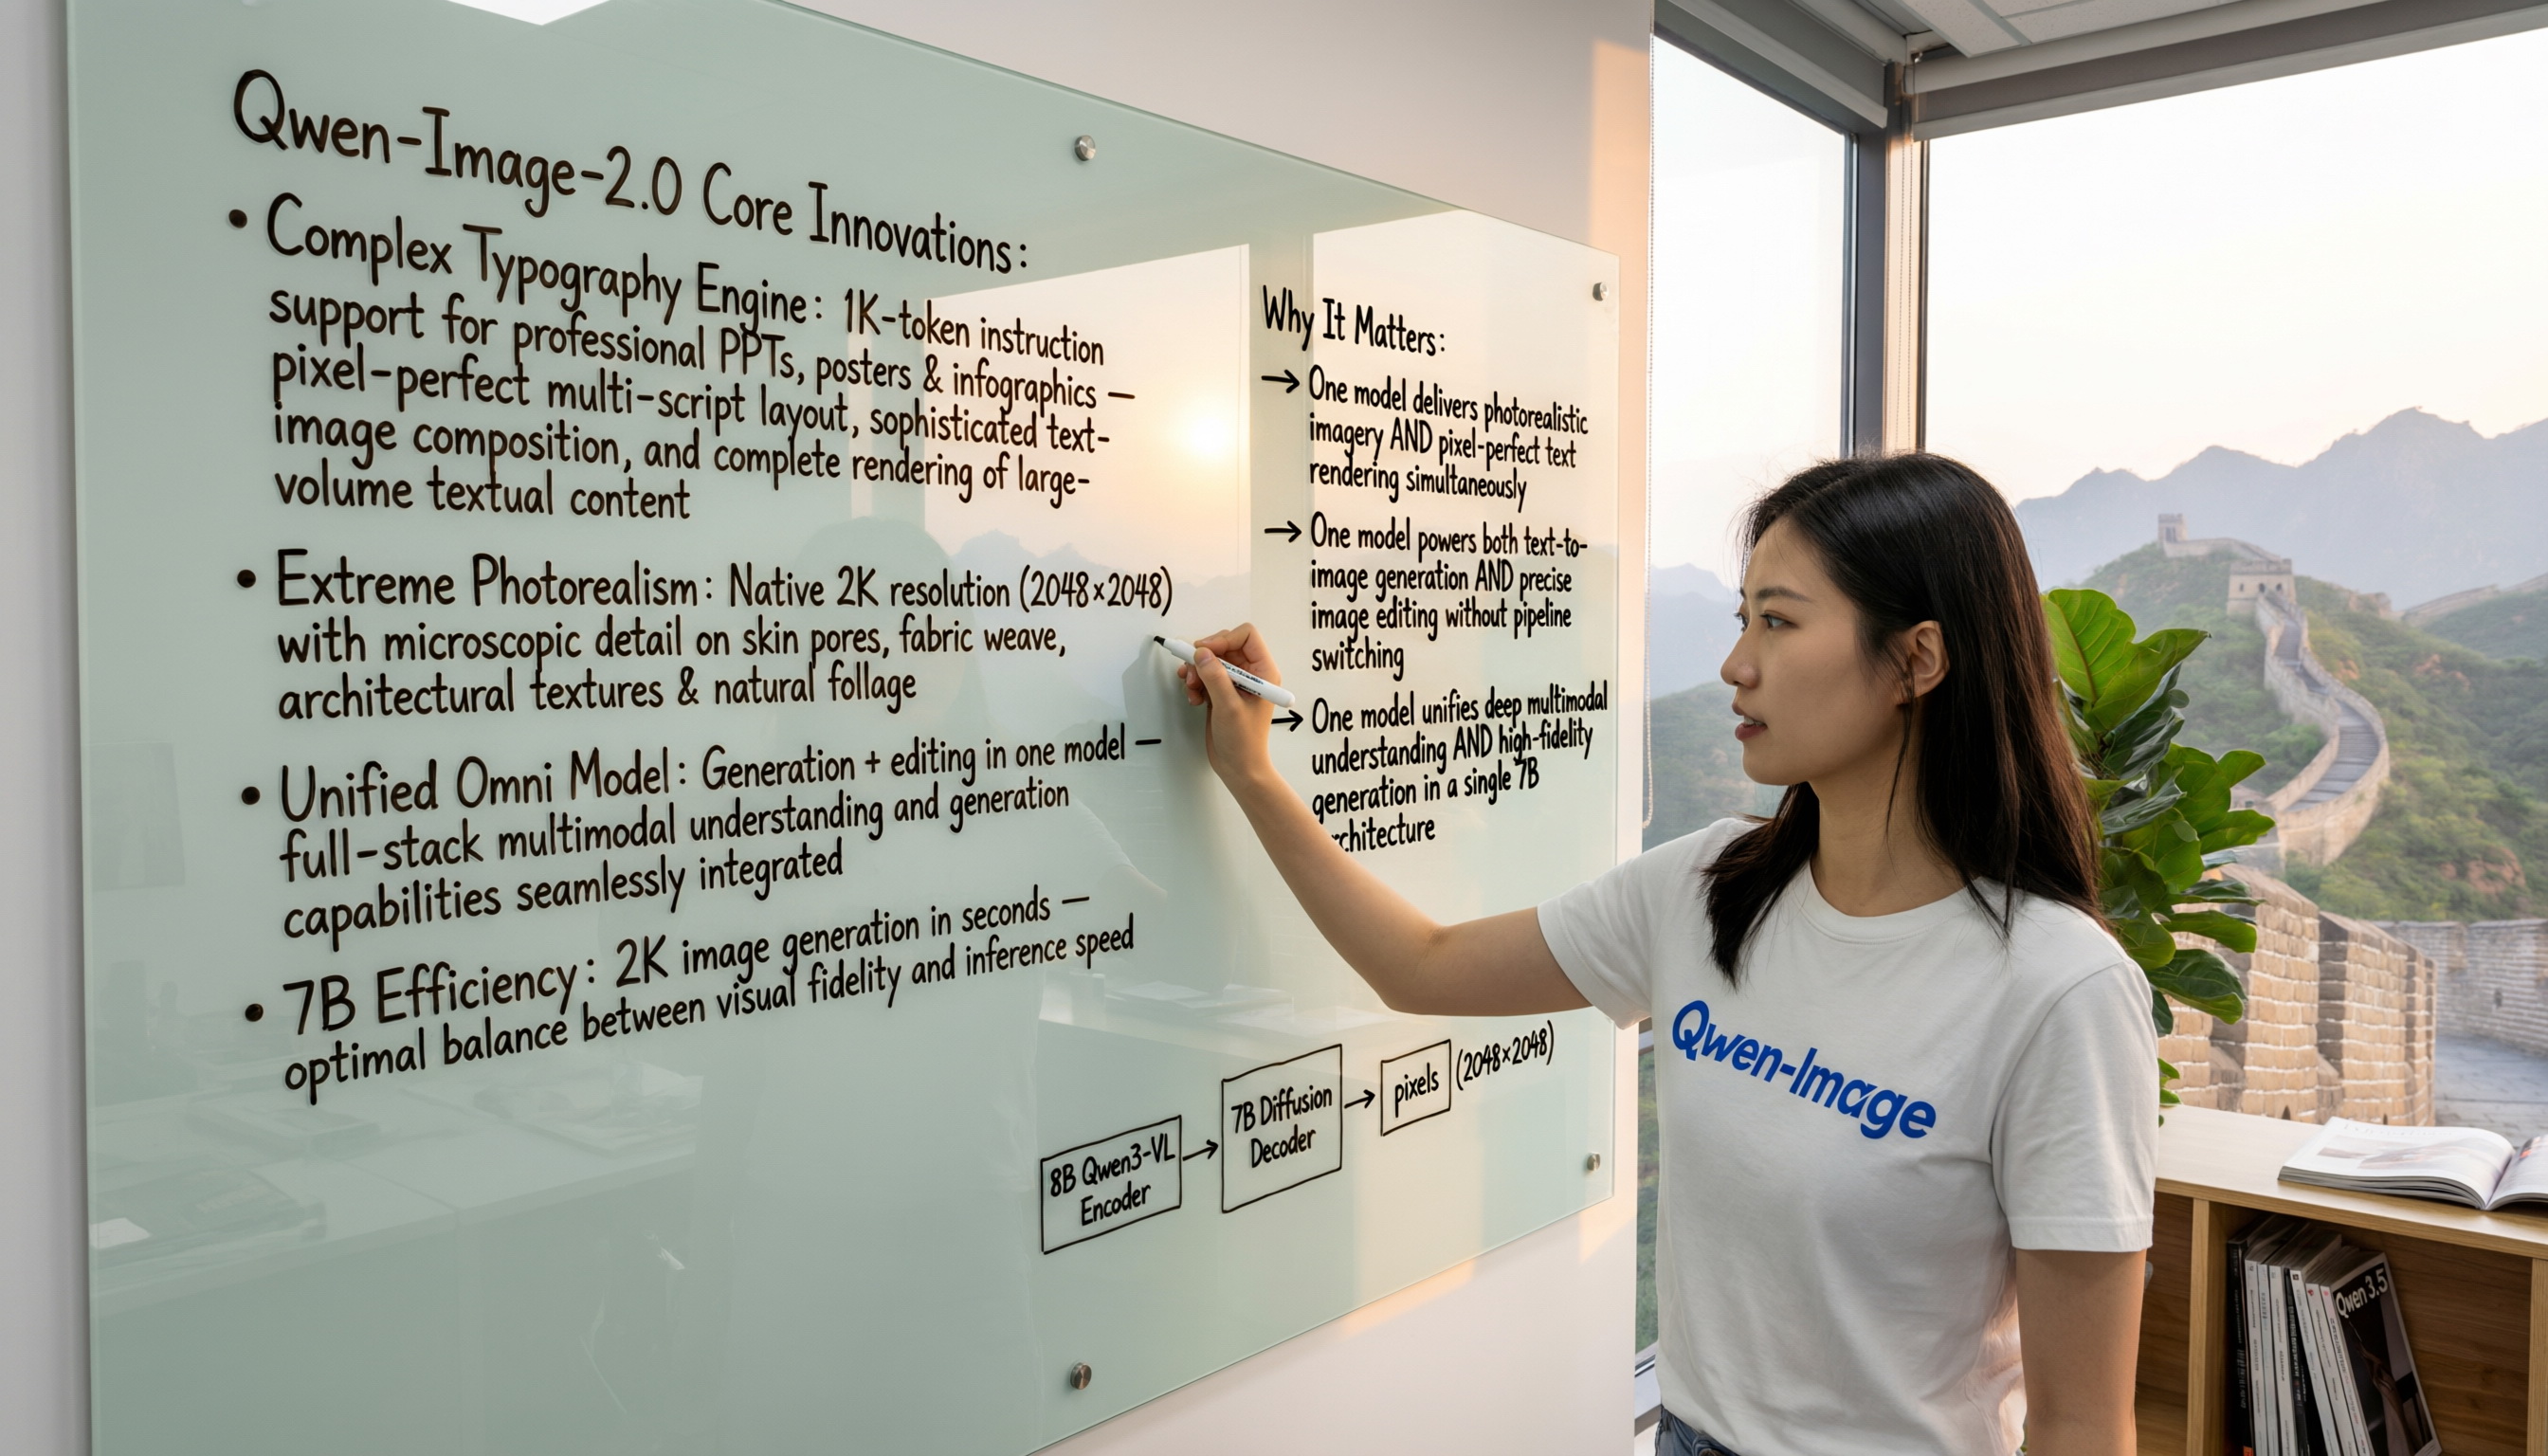 Qwen-Image-2.0 Core Innovations:
• Complex Typography Engine: 1K-token instruction
support for professional PPTs, posters & infographics —
pixel-perfect multi-script layout, sophisticated text-
image composition, and complete rendering of large-
volume textual content
• Extreme Photorealism: Native 2K resolution (2048×2048)
with microscopic detail on skin pores, fabric weave,
architectural textures & natural follage
• Unified Omni Model: Generation + editing in one model —
full-stack multimodal understanding and generation
capabilities seamlessly integrated
• 7B Efficiency: 2K image generation in seconds —
optimal balance between visual fidelity and inference speed
Why It Matters:
→ One model delivers photorealistic
imagery AND pixel-perfect text
rendering simultaneously
→ One model powers both text-to-
image generation AND precise
image editing without pipeline
switching
→ One model unifies deep multimodal
understanding AND high-fidelity
generation in a single 7B
rchitecture
8B Qwen3-VL
Encoder
→
7B Diffusion
Decoder
→
pixels
(2048×2048)
Qwen-Image
Qwen 3.5